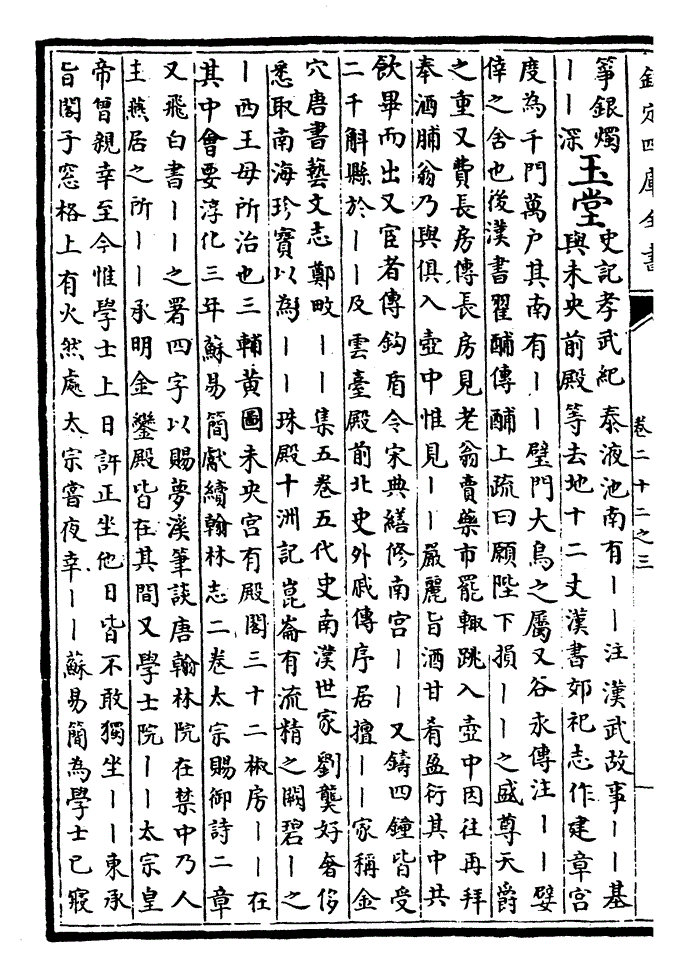 欽定四庫全書 卷二十二之三
箏銀燭
丨丨深
玉堂
史記孝武紀泰液池南有丨丨注漢武故事丨丨基
與未央前殿等去地十二丈漢書郊祀志作建章宮
度為千門萬户其南有丨丨璧門大鳥之屬又谷永傳注丨丨嬖
倖之舍也後漢書翟酺傳酺上疏曰願陛下損丨丨之盛尊天爵
之重又費長房傳長房見老翁賣藥市罷輙跳入壺中因往再拜
奉酒脯翁乃與俱入壺中惟見丨丨嚴麗旨酒甘肴盈衍其中共
飲畢而出又宦者傳鈎盾令宋典繕修南宮丨丨又鑄四鐘皆受
二千斛縣於丨丨及雲臺殿前北史外戚傳序居擅丨丨家稱金
穴唐書藝文志鄭畋丨丨集五卷五代史南漢世家劉龑好奢侈
悉取南海珍寶以為丨丨珠殿十洲記崑崙有流精之闕碧丨之
丨西王母所治也三輔黃圖未央宮有殿閣三十二椒房丨丨在
其中會要淳化三年蘇易簡獻續翰林志二卷太宗賜御詩二章
又飛白書丨丨之署四字以賜夢溪筆談唐翰林院在禁中乃人
主燕居之所丨丨承明金鑾殿皆在其間又學士院丨丨太宗皇
帝曾親幸至今惟學士上日許正坐他日皆不敢獨坐丨丨東承
旨閣子窓格上有火然處太宗嘗夜幸丨丨蘇易簡為學士已寢